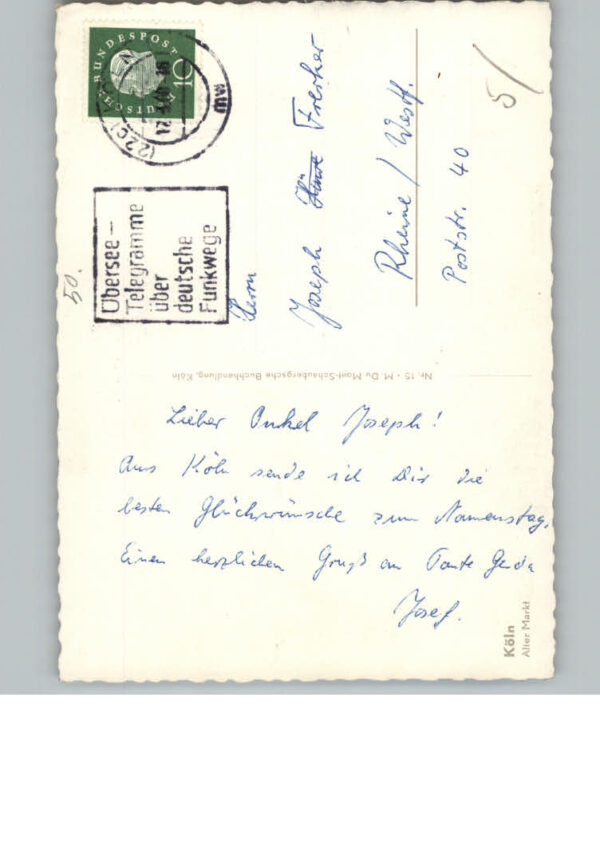 DEUTSCHE BUNDESPOST
10
(22c) KÖLN
mw
Übersee-
Telegramme
über
deutsche
Funkwege
50.
5/
Herrn
Joseph
Rheine / Westf.
Poststr. 40
Nr. 15 · M. Du Mont-Schaubergsche Buchhandlung, Köln
Lieber Onkel Joseph!
Aus Köln sende ich Dir die
besten Glückwünsche zum Namenstag.
Einen herzlichen Gruß an Tante Gerda
Josef.
Köln
Alter Markt